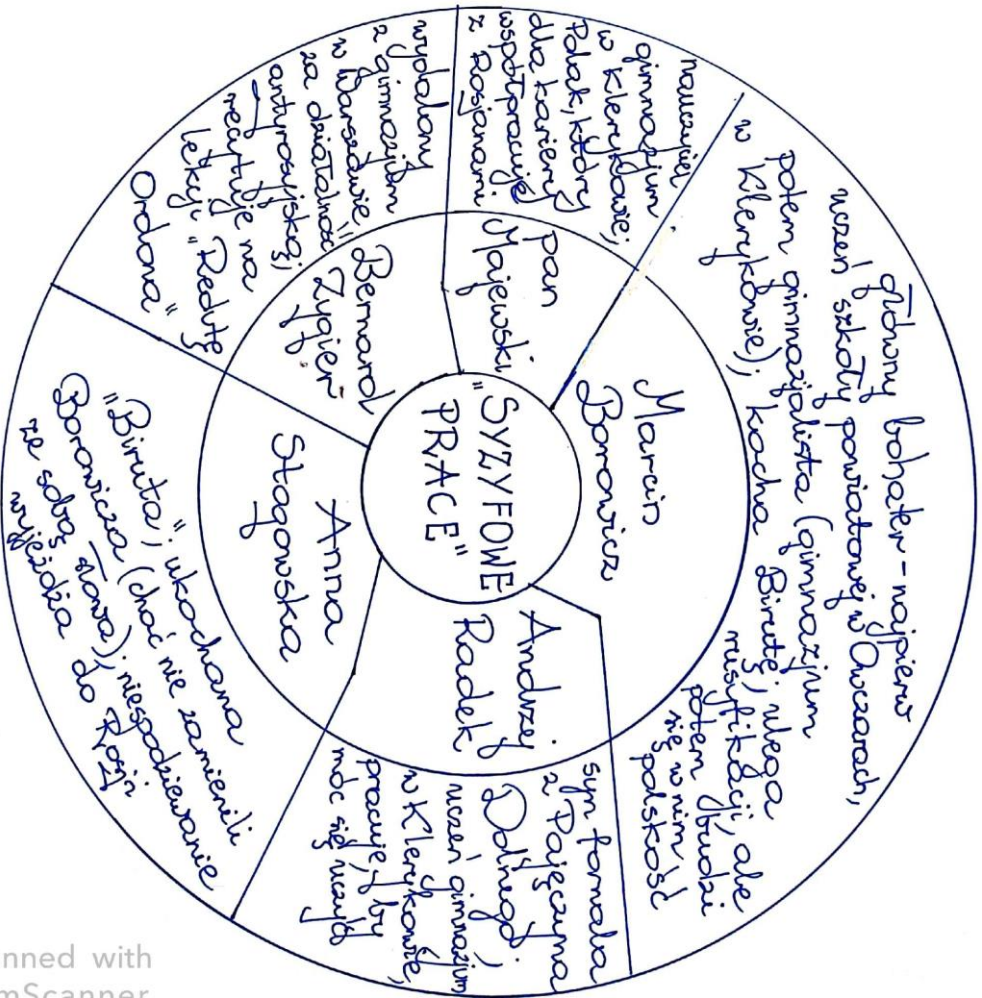 "SYZYFOWE
PRACE"
Marcin
Borowicz
główny bohater - najpierw
uczeń szkoły powiatowej w Owczarach,
potem gimnazjalista (gimnazjum
w Klerykowie); kocha Birutę; ulega
rusyfikacji, ale
potem budzi
się w nim
polskość
Andrzej
Radek
syn fornala
z Pajęczyna
Dolnego;
uczeń gimnazjum
w Klerykowie,
pracuje, by
móc się uczyć
Anna
Stogowska
"Biruta"; ukochana
Borowicza (choć nie zamienili
ze sobą słowa); niespodziewanie
wyjeżdża do Rosji
Bernard
Zygier
wydalony
z gimnazjum
w Warszawie
za działalność
antyrosyjską;
recytuje na
lekcji "Redutę
Ordona"
pan
Majewski
nauczyciel
gimnazjum
w Klerykowie;
Polak, który
dla kariery
współpracuje
z Rosjanami
nned with
mScanner